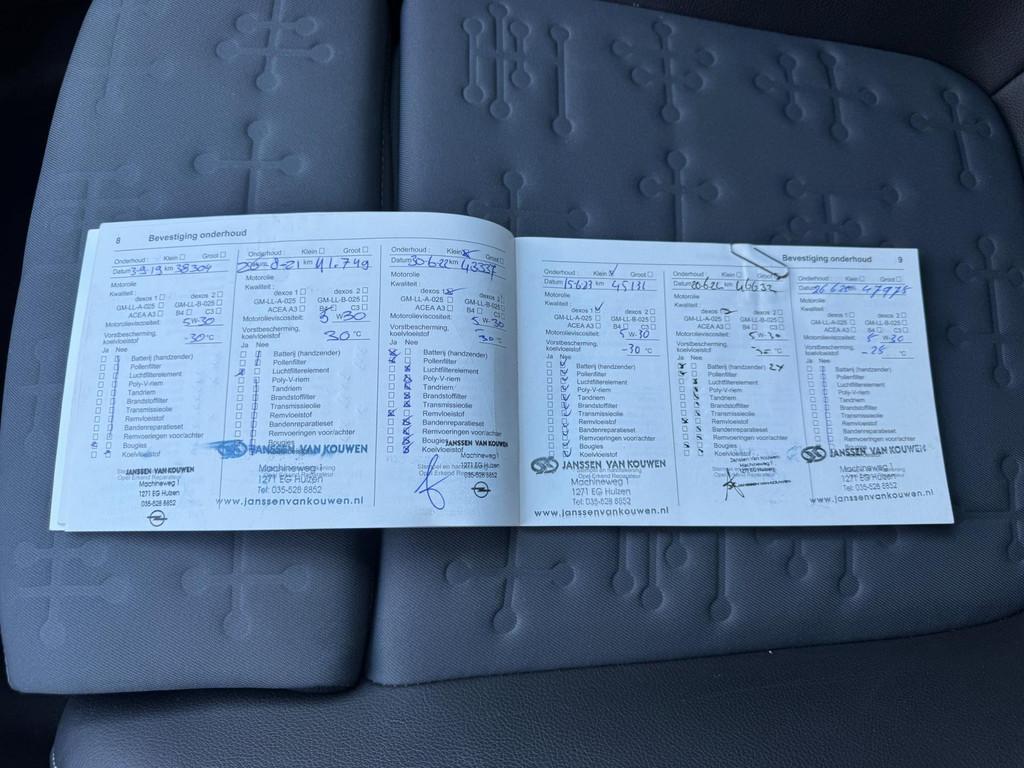 8 Bevestiging onderhoud
Onderhoud : Klein Groot
Datum 3-9-19 km 38304
Motorolie
Kwaliteit :
dexos 1 dexos 2
GM-LL-A-025 GM-LL-B-025
ACEA A3 B4 C3
Motorolieviscositeit: 5W-30
Vorstbescherming,
koelvloeistof -30 °C
Ja Nee
Batterij (handzender)
Pollenfilter
Luchtfilterelement
Poly-V-riem
Tandriem
Brandstoffilter
Transmissieolie
Remvloeistof
Bandenreparatieset
Remvoeringen voor/achter
Bougies
Koelvloeistof
JANSSEN VAN KOUWEN
Machineweg 1
1271 EG Huizen
035-528 8852
Onderhoud : Klein Groot
8-21 km 41.749
Motorolie
Kwaliteit :
dexos 1 dexos 2
GM-LL-A-025 GM-LL-B-025
ACEA A3 B4 C3
Motorolieviscositeit: 5 W30
Vorstbescherming,
koelvloeistof 30 °C
Ja Nee
Batterij (handzender)
Pollenfilter
Luchtfilterelement
Poly-V-riem
Tandriem
Brandstoffilter
Transmissieolie
Remvloeistof
Bandenreparatieset
Remvoeringen voor/achter
Bougies
Koelvloeistof
JANSSEN VAN KOUWEN
Machineweg 1
1271 EG Huizen
Tel: 035-528 8852
www.janssenvankouwen.nl
Onderhoud : Klein Groot
Datum 30-6-22 km 43337
Motorolie
Kwaliteit :
dexos 1 dexos 2
GM-LL-A-025 GM-LL-B-025
ACEA A3 B4 C3
Motorolieviscositeit: 5 W-30
Vorstbescherming,
koelvloeistof 30 °C
Ja Nee
Batterij (handzender)
Pollenfilter
Luchtfilterelement
Poly-V-riem
Tandriem
Brandstoffilter
Transmissieolie
Remvloeistof
Bandenreparatieset
Remvoeringen voor/achter
Bougies
Koelvloeistof
JANSSEN VAN KOUWEN
Machineweg 1
1271 EG Huizen
035-528 8852
Bevestiging onderhoud 9
Onderhoud : Klein Groot
Datum 15-6-23 km 45131
Motorolie
Kwaliteit :
dexos 1 dexos 2
GM-LL-A-025 GM-LL-B-025
ACEA A3 B4 C3
Motorolieviscositeit: 5 W-30
Vorstbescherming,
koelvloeistof -30 °C
Ja Nee
Batterij (handzender)
Pollenfilter
Luchtfilterelement
Poly-V-riem
Tandriem
Brandstoffilter
Transmissieolie
Remvloeistof
Bandenreparatieset
Remvoeringen voor/achter
Bougies
Koelvloeistof
JANSSEN VAN KOUWEN
Machineweg 1
1271 EG Huizen
Tel: 035-528 8852
www.janssenvankouwen.nl
Onderhoud : Klein Groot
Datum 20-6-24 km 46632
Motorolie
Kwaliteit :
dexos 1 dexos 2
GM-LL-A-025 GM-LL-B-025
ACEA A3 B4 C3
Motorolieviscositeit: 5 W-30
Vorstbescherming,
koelvloeistof °C
Ja Nee
Batterij (handzender) 2x
Pollenfilter
Luchtfilterelement
Poly-V-riem
Tandriem
Brandstoffilter
Transmissieolie
Remvloeistof
Bandenreparatieset
Remvoeringen voor/achter
Bougies
Koelvloeistof
Janssen van Kouwen
Machineweg 1
1271 EG Huizen
Onderhoud : Klein Groot
Datum km 47778
Motorolie
Kwaliteit :
dexos 1 dexos 2
GM-LL-A-025 GM-LL-B-025
ACEA A3 B4 C3
Motorolieviscositeit: 5 W-30
Vorstbescherming,
koelvloeistof -25 °C
Ja Nee
Batterij (handzender)
Pollenfilter
Luchtfilterelement
Poly-V-riem
Tandriem
Brandstoffilter
Transmissieolie
Remvloeistof
Bandenreparatieset
Remvoeringen voor/achter
Bougies
Koelvloeistof
JANSSEN VAN KOUWEN
Machineweg 1
1271 EG Huizen
Tel: 035-528 8852
www.janssenvankouwen.nl